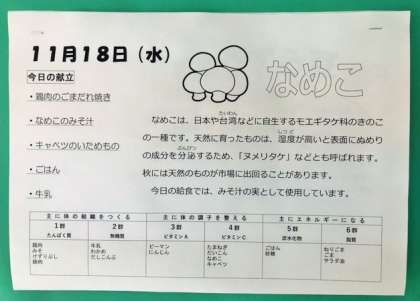 11月18日（水）
なめこ
今日の献立
・鶏肉のごまだれ焼き
・なめこのみそ汁
・キャベツのいためもの
・ごはん
・牛乳
なめこは、日本や台湾などに自生するモエギタケ科のきのこ
の一種です。天然に育ったものは、湿度が高いと表面にぬめり
の成分を分泌するため、「ヌメリタケ」などとも呼ばれます。
秋には天然のものが市場に出回ることがあります。
今日の給食では、みそ汁の実として使用しています。
主に体の組織をつくる 主に体の調子を整える 主にエネルギーになる
1群 2群 3群 4群 5群 6群
たんぱく質 無機質 ビタミンA ビタミンC 炭水化物 脂質
鶏肉 牛乳 ピーマン たまねぎ ごはん ねりごま
みそ わかめ にんじん だいこん 砂糖 ごま
けずりぶし だしこんぶ なめこ サラダ油
豚肉 キャベツ